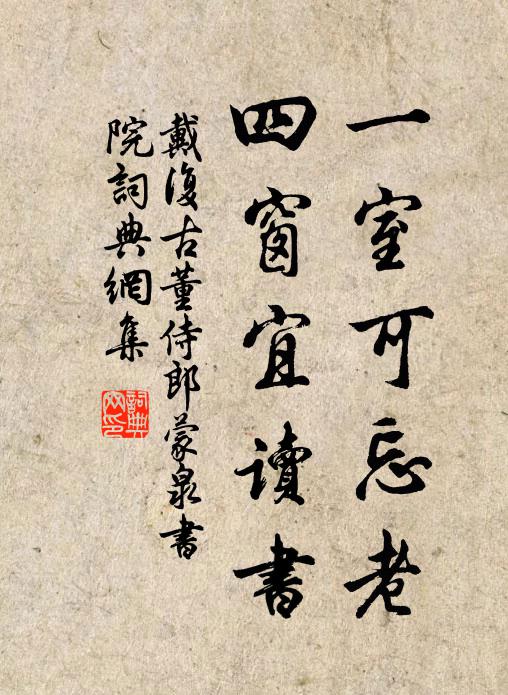 一室可忘老
四窗宜讀書
戴復古董侍郎蒙泉書
院詞典網集
詞典
网印